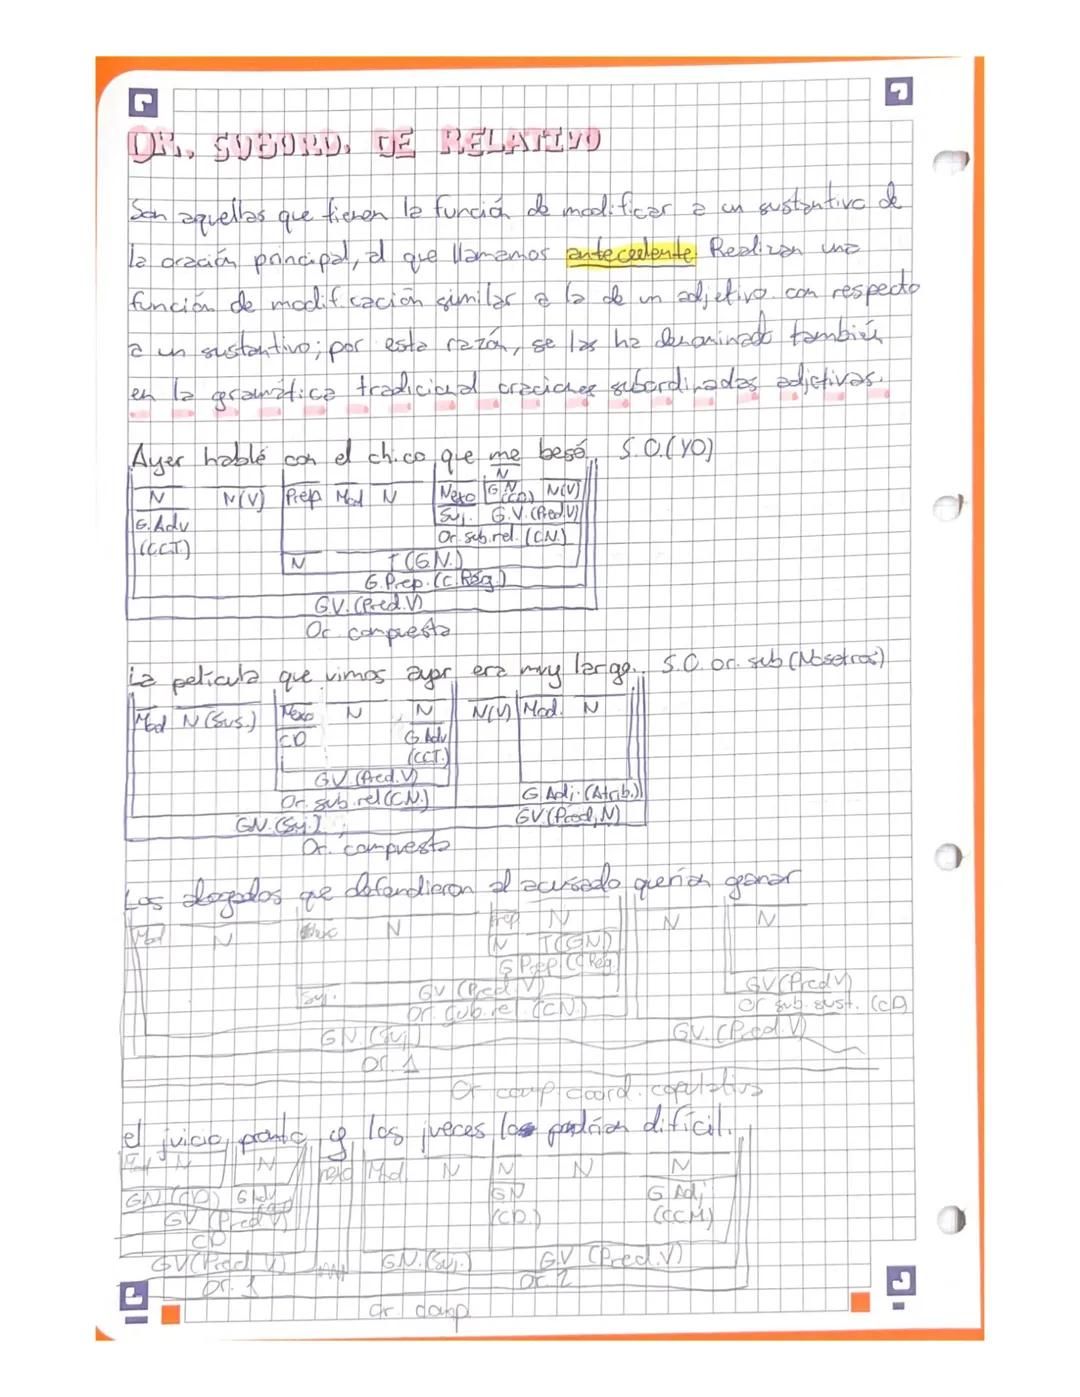 OR. SUBORD. DE RELATIVO
Son aquellas que tienen la función de modificar a un sustantivo de
la oración principal, al que llamamos antecedente. Realizan una
función de modificación similar a la de un adjetivo con respecto
a un sustantivo; por esta razón, se las ha denominado también
en la gramática tradicional oraciones subordinadas adjetivas.
Ayer hablé con el chico que me besó. S.O.(YO)
N
N N(V) Prep Mod N Nexo G.N N(V)
G.Adv (CD)
Suj. G.V.(Pred.V)
(CCT) Or. sub.rel. (CN.)
N T(G.N.)
G.Prep.(C.Rég.)
G.V.(Pred.V)
Or. compuesta
La película que vimos ayer era muy larga. S.O. or. sub (Nosotros)
Mod N(Sus.) Nexo N N N(V) Mod. N
CD G.Adv
(CCT.)
GV.(Pred.V)
Or. sub.rel(CN.) G.Adj.(Atrib.)
GN.(Suj.) GV(Pred.N)
Or. compuesta
Los abogados que defendieron al acusado querían ganar
Mod N Nexo N Prep N N N
N T(GN)
G.Prep(C.Rég.)
Suj. GV(Pred V) GV(PredV)
Or. sub.rel. (CN.) Or sub.sust. (CD)
GN.(Suj) GV.(Pred.V)
Or. 1
Or comp. coord. copulativa
el juicio pronto y los jueces lo pondrían difícil.
N N nexo Mod. N N N N
GN(CD) G.Adv GN G Adj
GV(Pred V) (CD) (CCM)
CD
GV(Pred V) GN.(Suj.) G.V (Pred.V)
Or. 1 Or. 2
Or comp